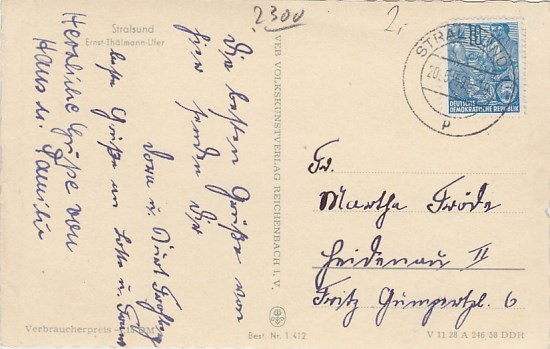 Stralsund
Ernst-Thälmann-Ufer
2300
2.
Die besten Grüße von
hier senden Dir
Dora u. Kurt
beste Grüße an Lotte u.
Herzliche Grüße von
Hans u. Familie
Verbraucherpreis
VEB VOLKSKUNSTVERLAG REICHENBACH I. V.
Best. Nr. 1/412
STRALSUND
DEUTSCHE
DEMOKRATISCHE REPUBLIK
5
p
Fr.
Martha Fröde
Heidenau II
Fritz Gumpertpl. 6
V 11 28 A 246/58 DDR